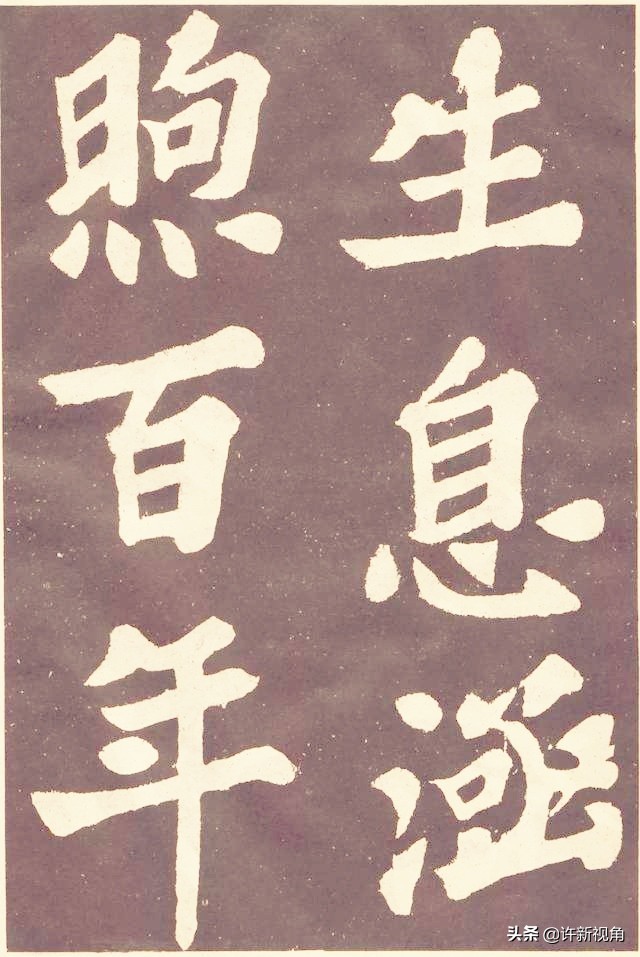 生息涵
煦百年
头条 @许新视角